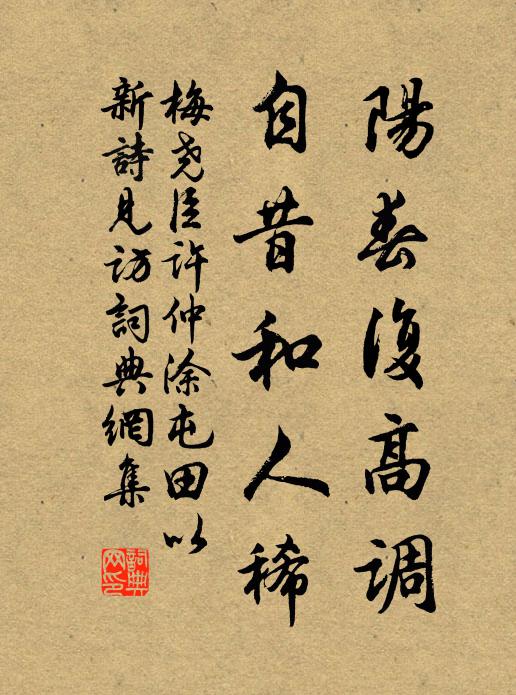 陽春復高調
自昔和人稀
梅尧臣許仲涂屯田以
新詩見访詞典網集
詞典网印